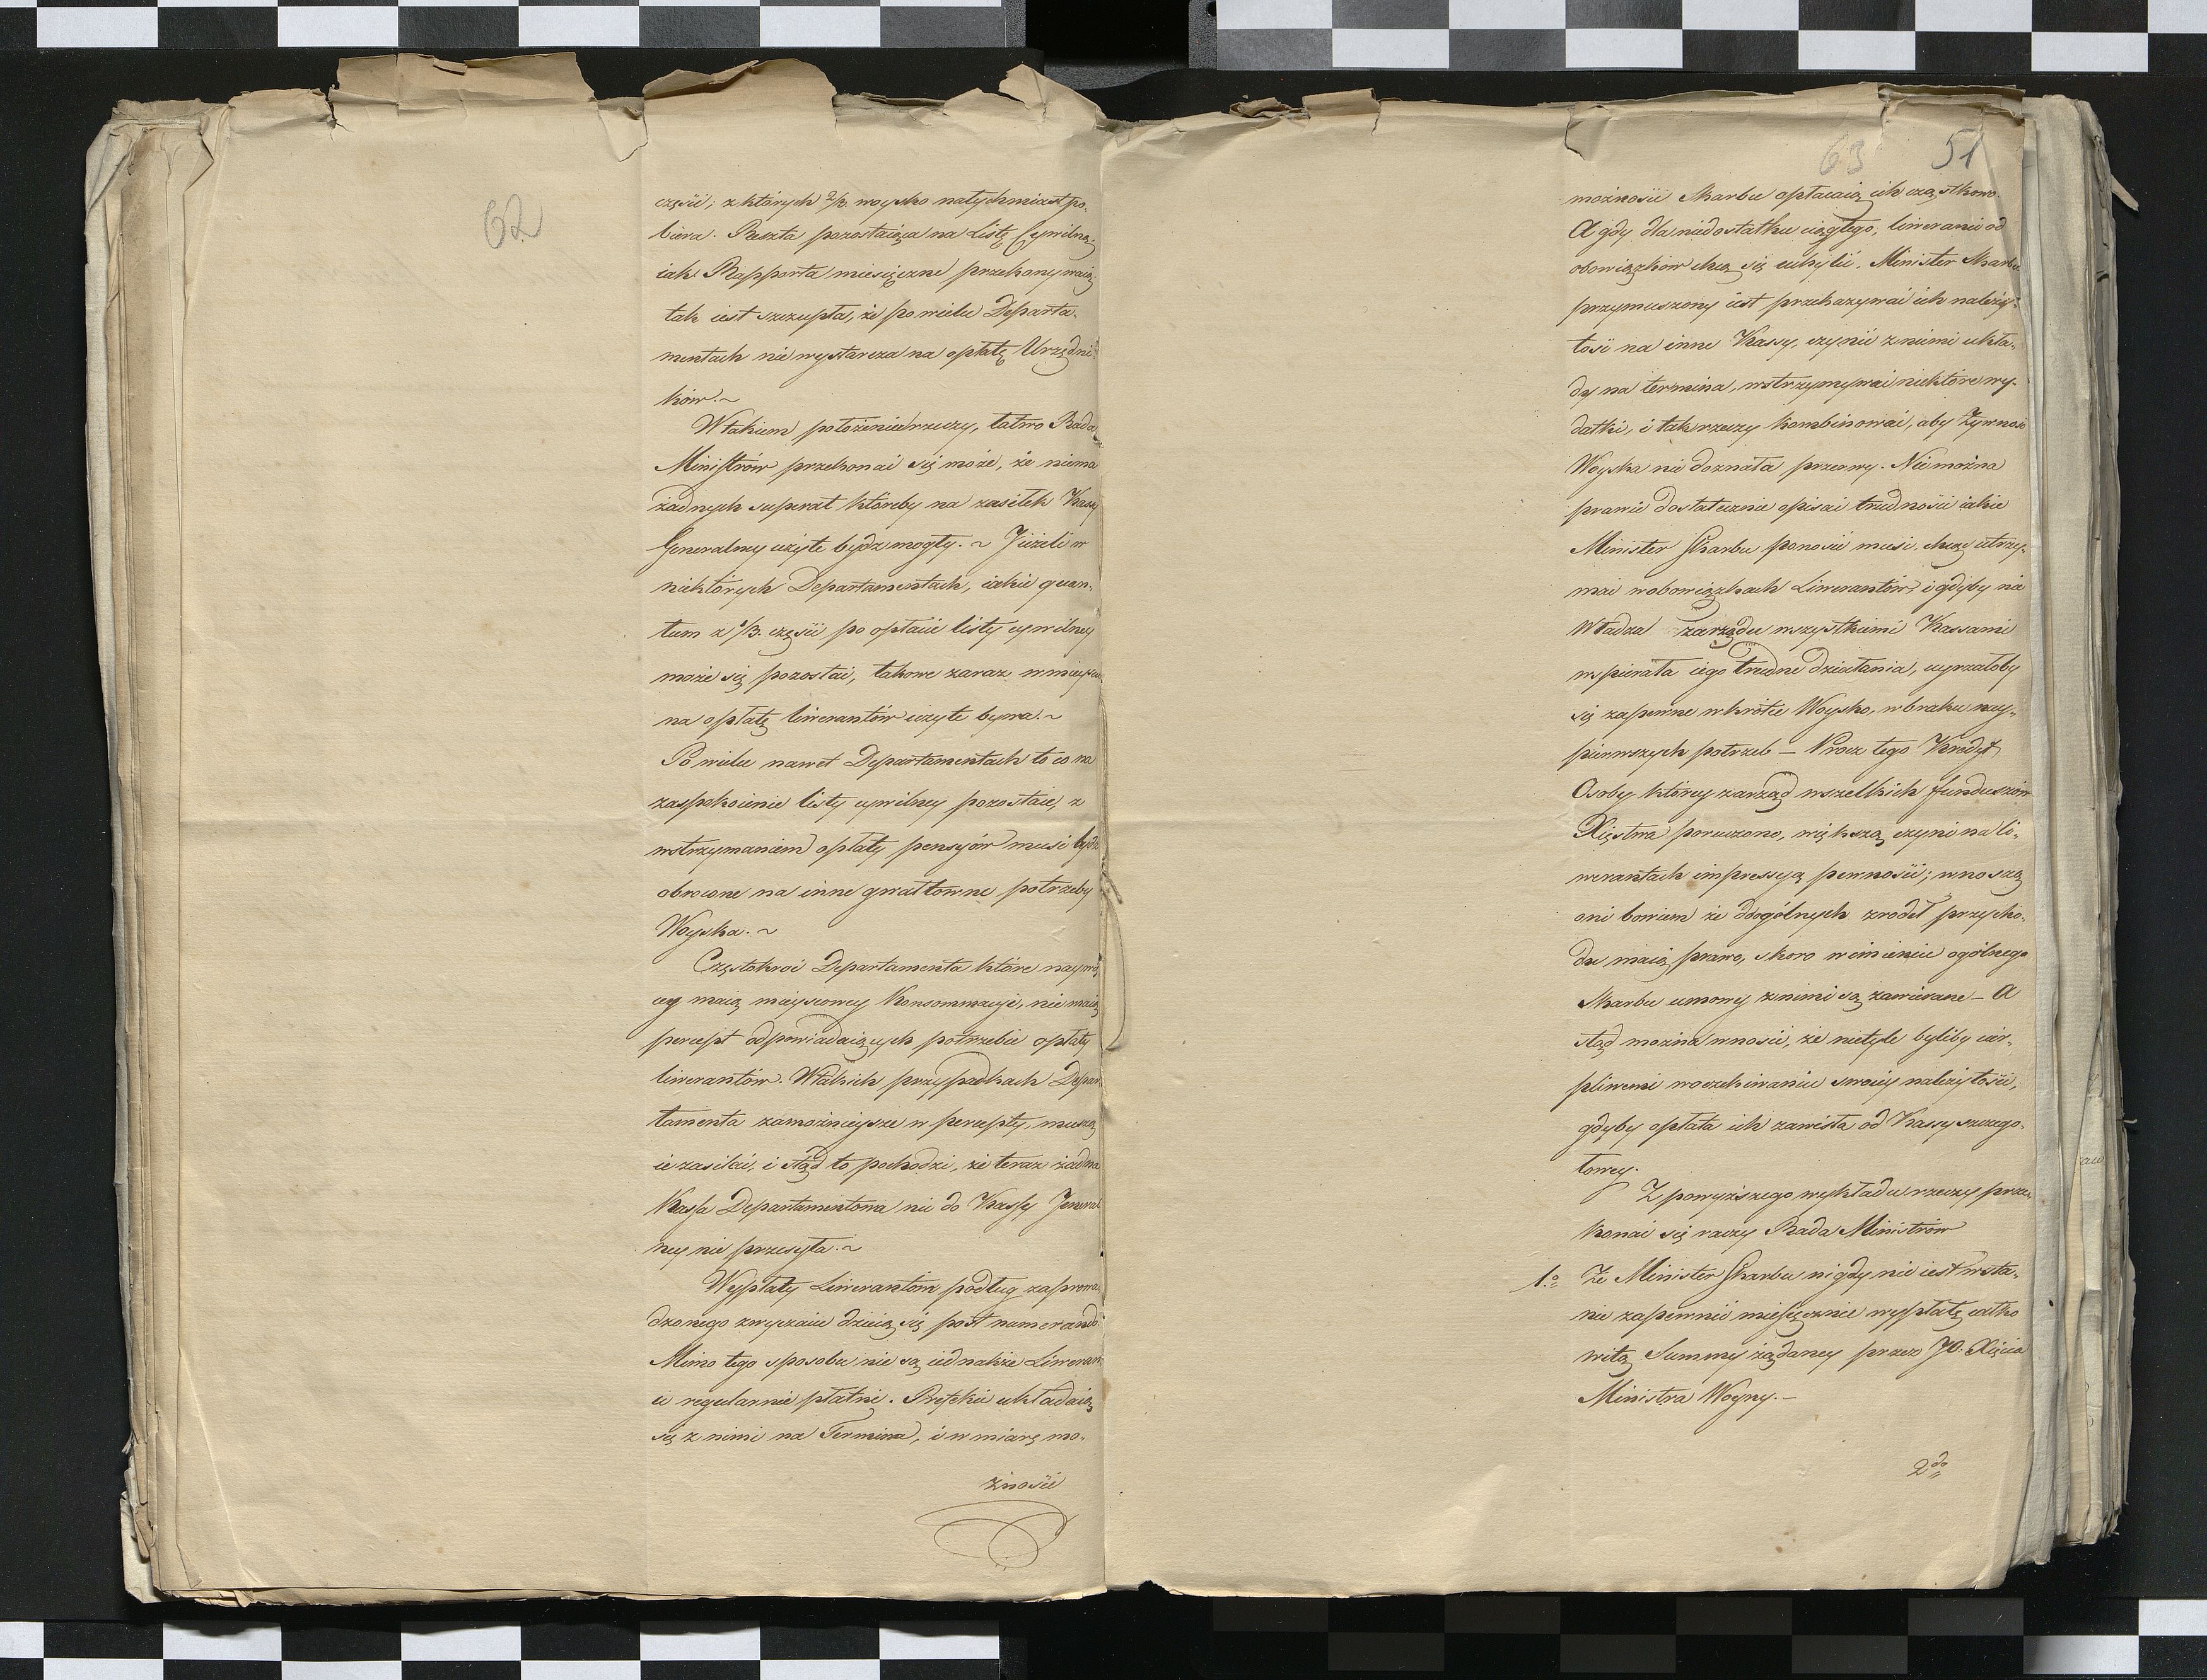 62
częścи; z których 2/3. woysko natychmiast po-
biera. Reszta pozostaiąca na Listę Cywilną
iak Rapporta miesięczne przekonywaią
tak iest szczupła, że po wielu Departa-
mentach nie wystarcza na opłatę Urzędni
ków.~
W takiem położeniu rzeczy, łatwo Rada
Ministrów przekonać się może, że niema
żadnych superat któreby na zasiłek Kassy
Generalney użyte bydź mogły. ~ Jeżeli w
niektórych Departamentach, iakie quan-
tum z 1/3. części po opłacie listy cywilney
może się pozostać, takowe zaraz w mieyscu
na opłatę liwerantów użyte bywa.~
Po wielu nawet Departamentach to co na
zaspokoienie listy cywilney pozostaie, z
wstrzymaniem opłaty pensyów musi bydź
obrócone na inne gwałtowne potrzeby
Woyska.~
Częstokroć Departamenta które naywię
cey maią mieyscowey Konsommacyi, nie maią
percept odpowiadaiących potrzebie opłaty
liwerantów. W takich przypadkach Depar
tamenta zamożnieysze w percepty, muszą
ie zasilać, i stąd to pochodzi, że teraz żadna
Kassa Departamentowa nic do Kassy Jeneral
ney nie przesyła.~
Wypłaty Liwerantom podług zaprowa
dzonego zwyczaiu dzieią się post numerando.
Mimo tego sposobu nie są iednakże Liweran
ci regularnie płatni. Prefekci układaią
się z nimi na Termina, i w miarę mo-
żności
63 51
możności Skarbu opłacaią ich cząstkowo.
A gdy dla niedostatku ciągłego, liweranci od
obowiązków chcą się uchylić, Minister Skarbu
przymuszony iest przekazywać ich należy-
tość na inne Kassy, czynić z niemi ukła-
dy na termina, wstrzymywać niektóre wy-
datki, i tak rzeczy kombinować, aby żywność
Woyska nie doznała przerwy. Nie można
prawie dostatecznie opisać trudności iakie
Minister Skarbu ponosić musi, chcąc utrzy-
mać w obowiązkach Liwerantów, i gdyby nie
Władza zarządu wszystkiemi Kassami
wspierała iego trudne działania, uyrzałoby
się zapewne w krótce Woysko, w braku nay-
pierwszych potrzeb – Prócz tego Kredyt
Osoby którey zarząd wszelkich funduszów
Xięstwa poruczono, większą czyni na li-
werantach impressyą pewności; wnoszą
oni bowiem że do ogólnych źrodeł przycho-
du maią prawo, skoro w imieniu ogólnego
Skarbu umowy z nimi są zawierane – A
stąd można wnosić, że nietyle byliby cier-
pliwemi w oczekiwaniu swoiey należytości,
gdyby opłata ich zawisła od Kassy szczegó-
łowey.
Z powyższego wykładu rzeczy prze-
konać się raczy Rada Ministrów
1.o Że Minister Skarbu nigdy nie iest w sta-
nie zapewnić miesięcznie wypłatę całko
witą Summy żądaney przez JO. Xięcia
Ministra Woyny.–
2do